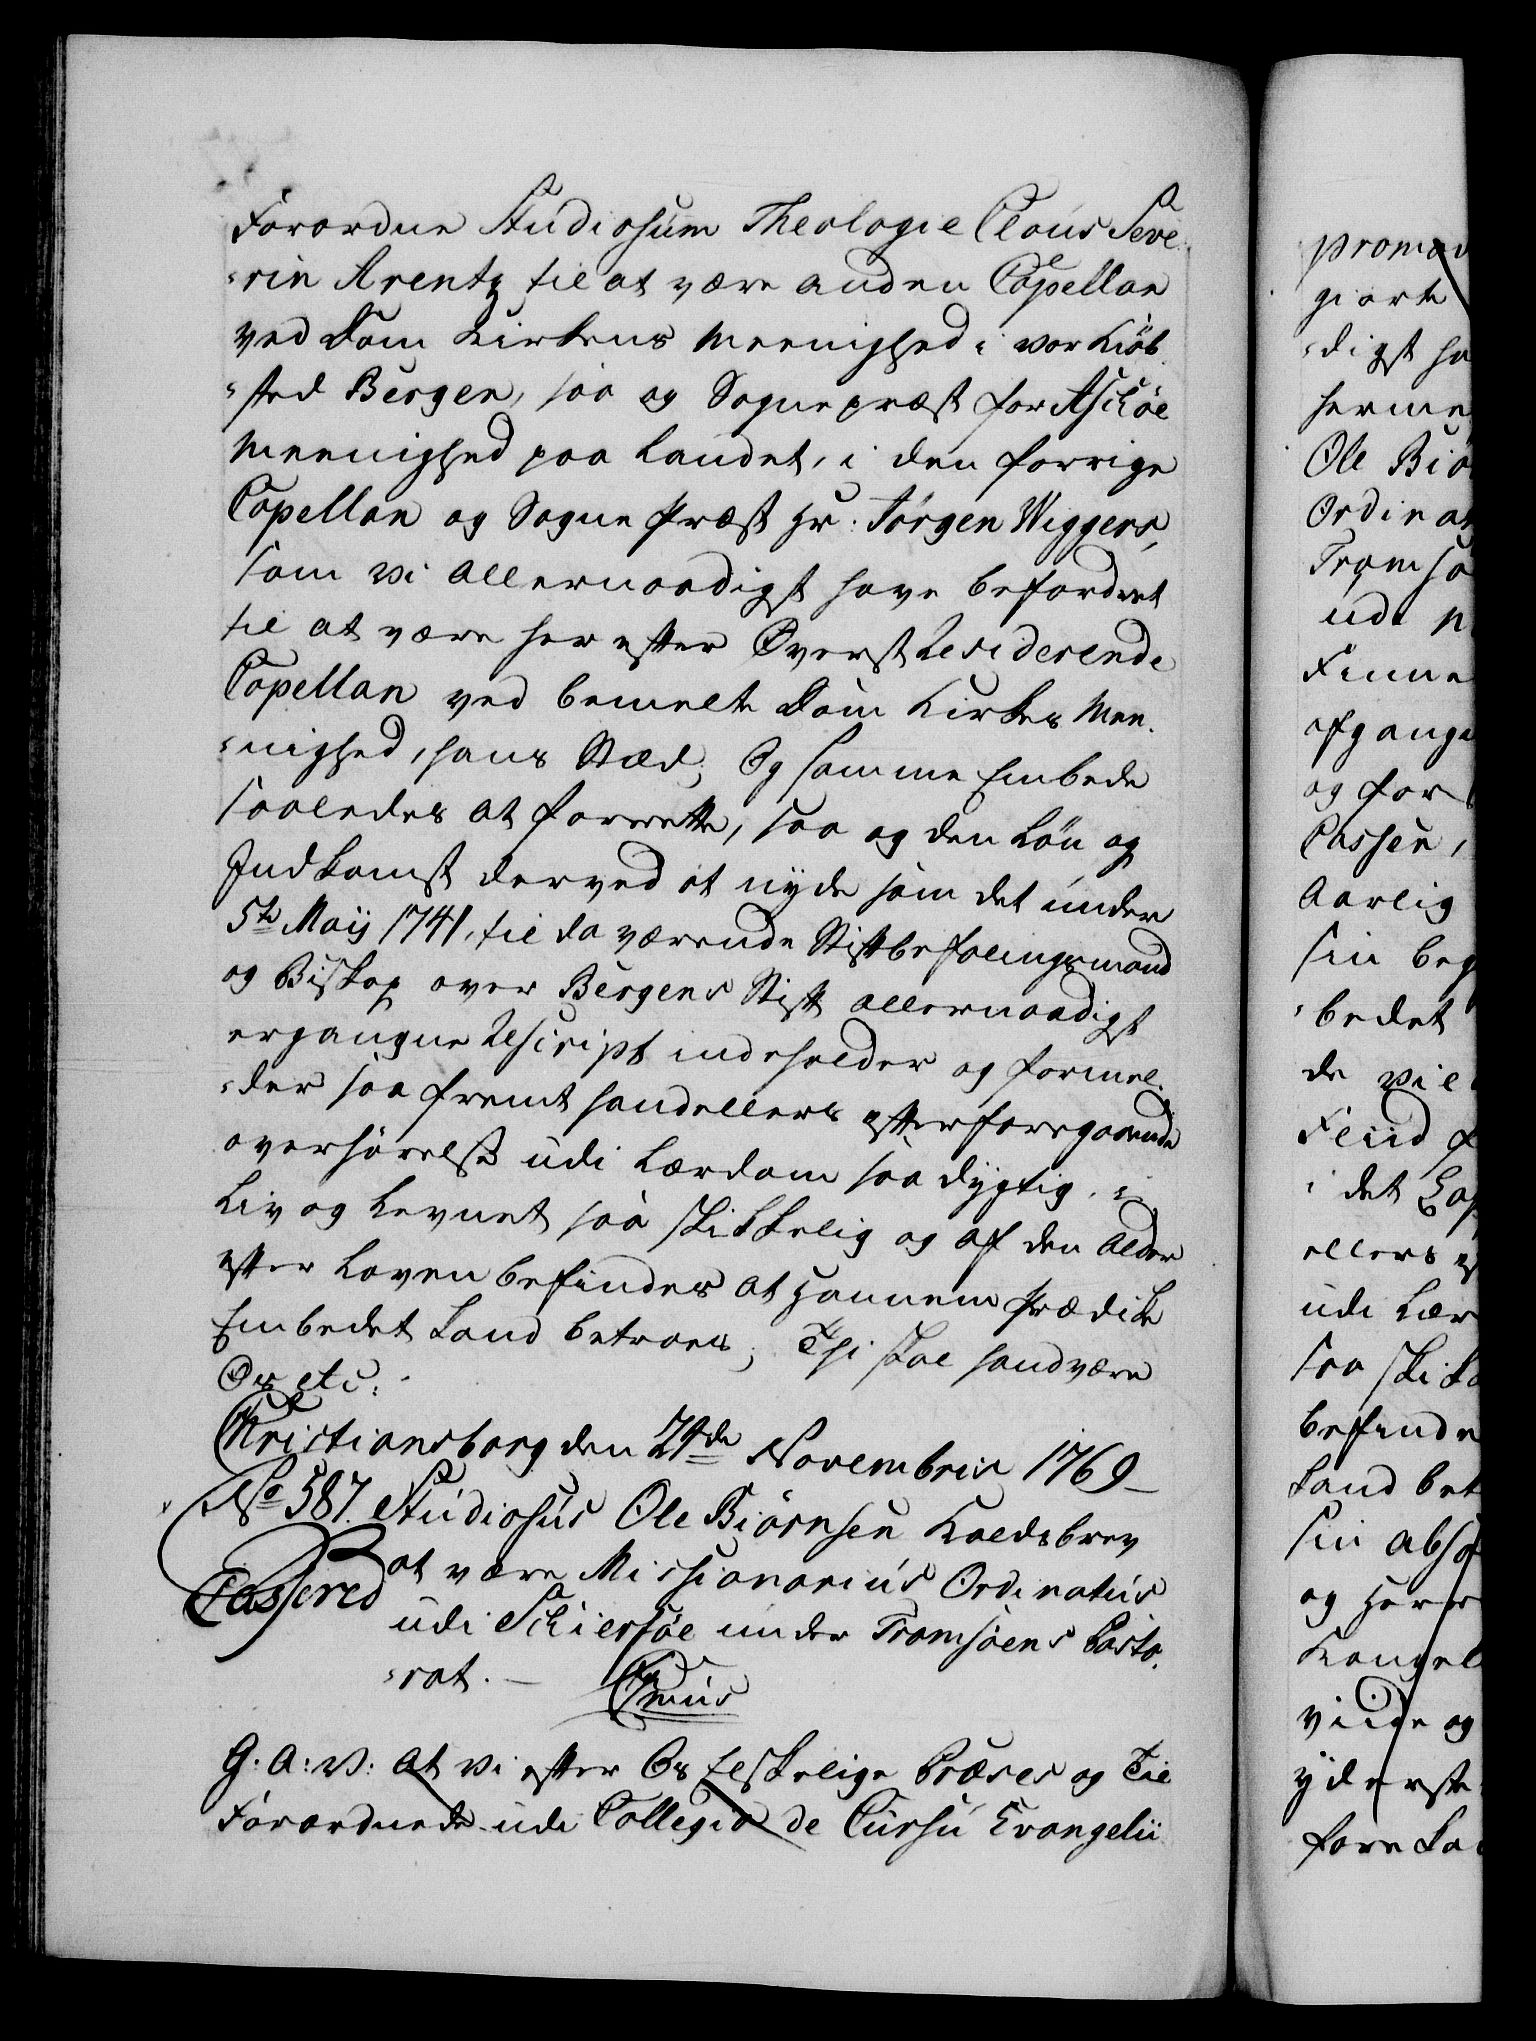 Forordne Studiosum Theologie Claus Seve-
-rin Arentz til at være anden Capellan
ved Dom Kirkens Meenighed i vor Kiöb-
-sted Bergen, saa og Sognepræst for Askøe
Meenighed paa Landet, i den forrige
Capellan og Sogne Præst Hr: Jørgen Wiggers,
som vi allernaadigst have befordret
til at være her efter Øverst Residerende
Capellan ved bemelte Dom Kirkes Mee-
-nighed, hans Stæd; Og samme Embede
saaledes at forrette, saa og den Lön og
Indkomst derved at nyde som det under
5te Maij 1741, til da værende Stiftbefalingsmand
og Biskop over Bergens Stift allernaadigst
ergangne Rescript indeholder og formel-
-der saa fremt hand ellers efter foregaaende
overhørelse udi Lærdom saa dygtig, i
Liv og Levnet saa skikkelig og af den Alder
efter Loven befindes at hannem Prædike
Embedet kand betroes; Thi skal hand være
Os etc:
Christiansborg den 24de Novembris 1769
No 587. Studiosus Ole Biørnsen Kaldsbrev
at være Missionarius Ordinatus
udi Schiersøe under Tromsøens Pasto-
-rat.
Cassered
G: A: V: at vi efter Os Elskelige Præses og Til
Forordnede udi Collegio de Cursu Evangelii
promov
giorte
-digst ha
herme
Ole Biø
Ordinat
Tromsø
udi
Finne
afgange
og for
Cassen,
Aarlig
sin beg
-bedet
de vil
Fliid
i det
ellers
udi Lær
saa skikk
befinde
kand bet
sin
og
Kongel
viide og
yderste